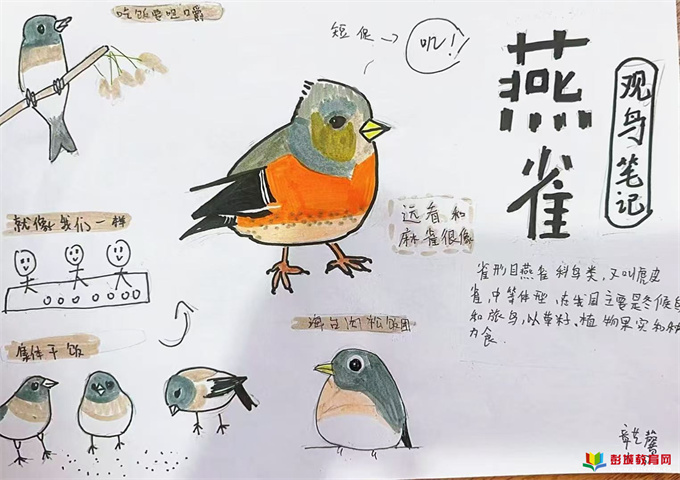 吃饭要咀嚼
短促
叽！
燕雀
观鸟笔记
就像我们一样
远看和
麻雀很像
雀形目燕雀科鸟类，又叫虎皮
雀，中等体型，在我国主要是冬候鸟
和旅鸟，以草籽、植物果实和种
为食．
集体干饭
海苔肉松饭团
彭城教育网